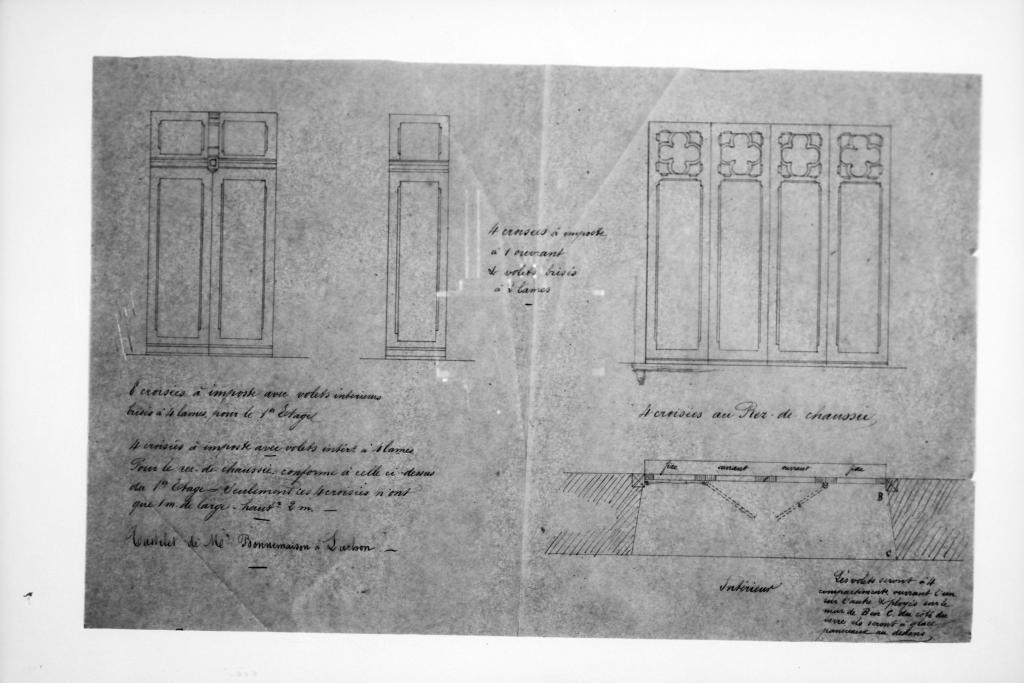 4 croisées à imposte
à 1 ouvrant
& volets brisés
à 2 lames
8 croisées à imposte avec volets intérieurs
brisés à 4 lames, pour le 1er Etage
4 croisées à imposte avec volets intérs à 4 lames
Pour le rez-de-chaussée conforme à celle ci-dessus
du 1er Etage - Seulement ces 4 croisées n'ont
que 1 m. de large - hautr 2 m. -
Castelet de Mr Bonnemaison à Luchon -
4 croisées au Rez-de chaussée,
fixe ouvrant ouvrant fixe
B
C
Intérieur
Les volets seront à 4
compartiments ouvrant l'un
sur l'autre & ployés sur le
mur de B en C. du côté du
verre ils seront à glace
panneaux au dedans,